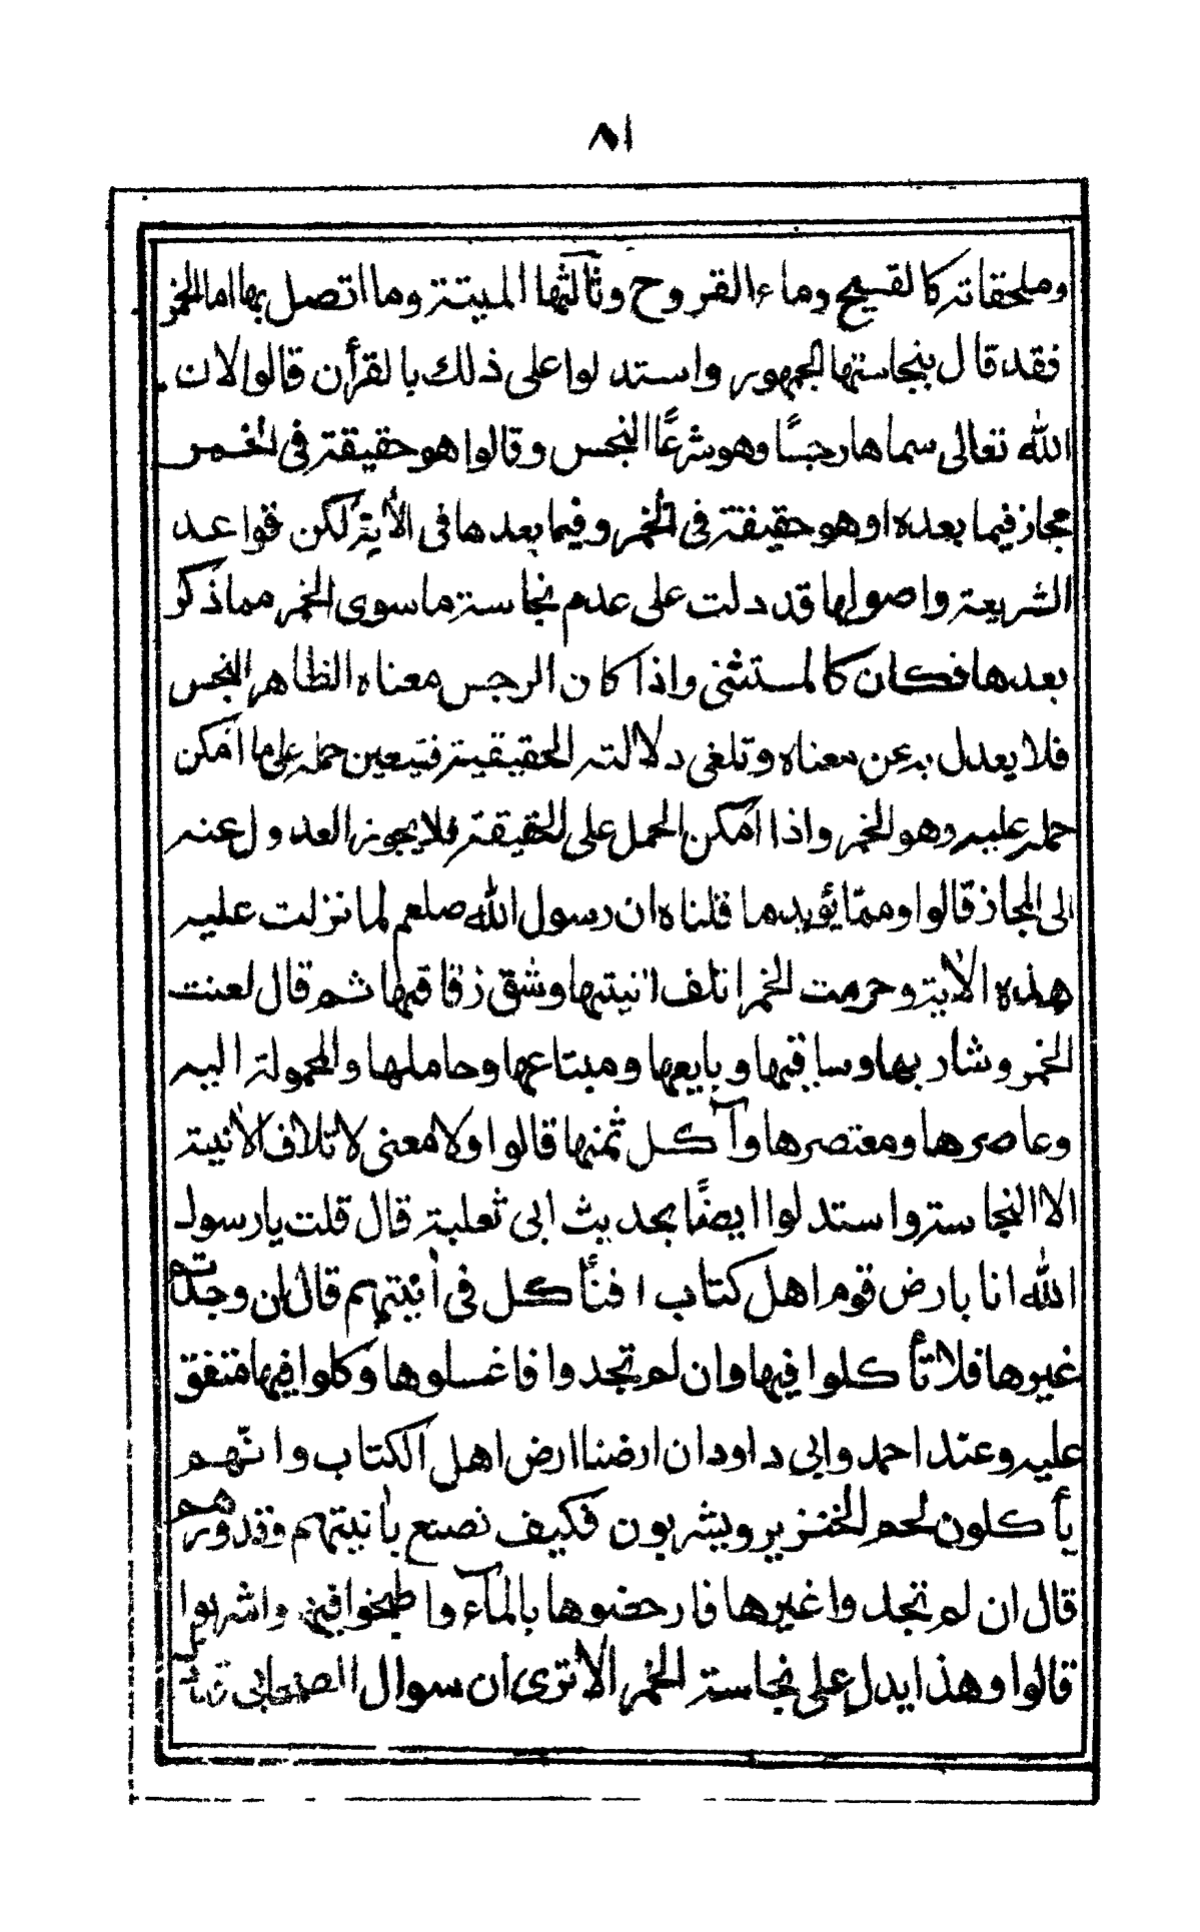 ٨١
وملحقاته كالقيح وماء القروح وثالثها الميتة وما اتصل بها اما الخمر
فقد قال بنجاستها الجمهور واستدلوا على ذلك بالقرأن قالوا لان
الله تعالى سماها رجسًا وهو شرعًا النجس وقالوا هو حقيقة فى الخمر
مجاز فيما بعده او هو حقيقة فى الخمر وفيما بعدها فى الأية لكن قواعد
الشريعة واصولها قد دلت على عدم نجاسة ما سوى الخمر مما ذكر
بعدها فكان كالمستثنى واذا كان الرجس معناه الظاهر النجس
فلا يعدل به عن معناه وتلغى دلالته الحقيقية فتيعين حمله على ما امكن
حمله عليه وهو الخمر واذا امكن الحمل على الحقيقة فلا يجوز العدول عنه
الى المجاز قالوا ومما يؤيد ما قلناه ان رسول الله صلعم لما نزلت عليه
هذه الأية وحرمت الخمر اتلف انيتها وشق زقاقها ثم قال لعنت
الخمر وشاربها وساقيها وبايعها ومبتاعها وحاملها والمحمولة اليه
وعاصرها ومعتصرها وآكل ثمنها قالوا ولا معنى لاتلاف الأنية
الا النجاسة واستدلوا ايضًا بحديث ابى ثعلبة قال قلت يا رسول
الله انا بارض قوم اهل كتاب افنأكل فى أنيتهم قال ان وجدتم
غيرها فلا تأكلوا فيها وان لم تجدوا فاغسلوها وكلوا فيها متفق
عليه وعند احمد وابى داود ان ارضنا ارض اهل الكتاب وانّهم
يأكلون لحم الخنزير ويشربون فكيف نصنع بأنيتهم وقدورهم
قال ان لم تجدوا غيرها فارحضوها بالمآء واطبخوا فيها واشربوا
قالوا وهذا يدل على نجاسة الخمر الأترى ان سوال الصحابى